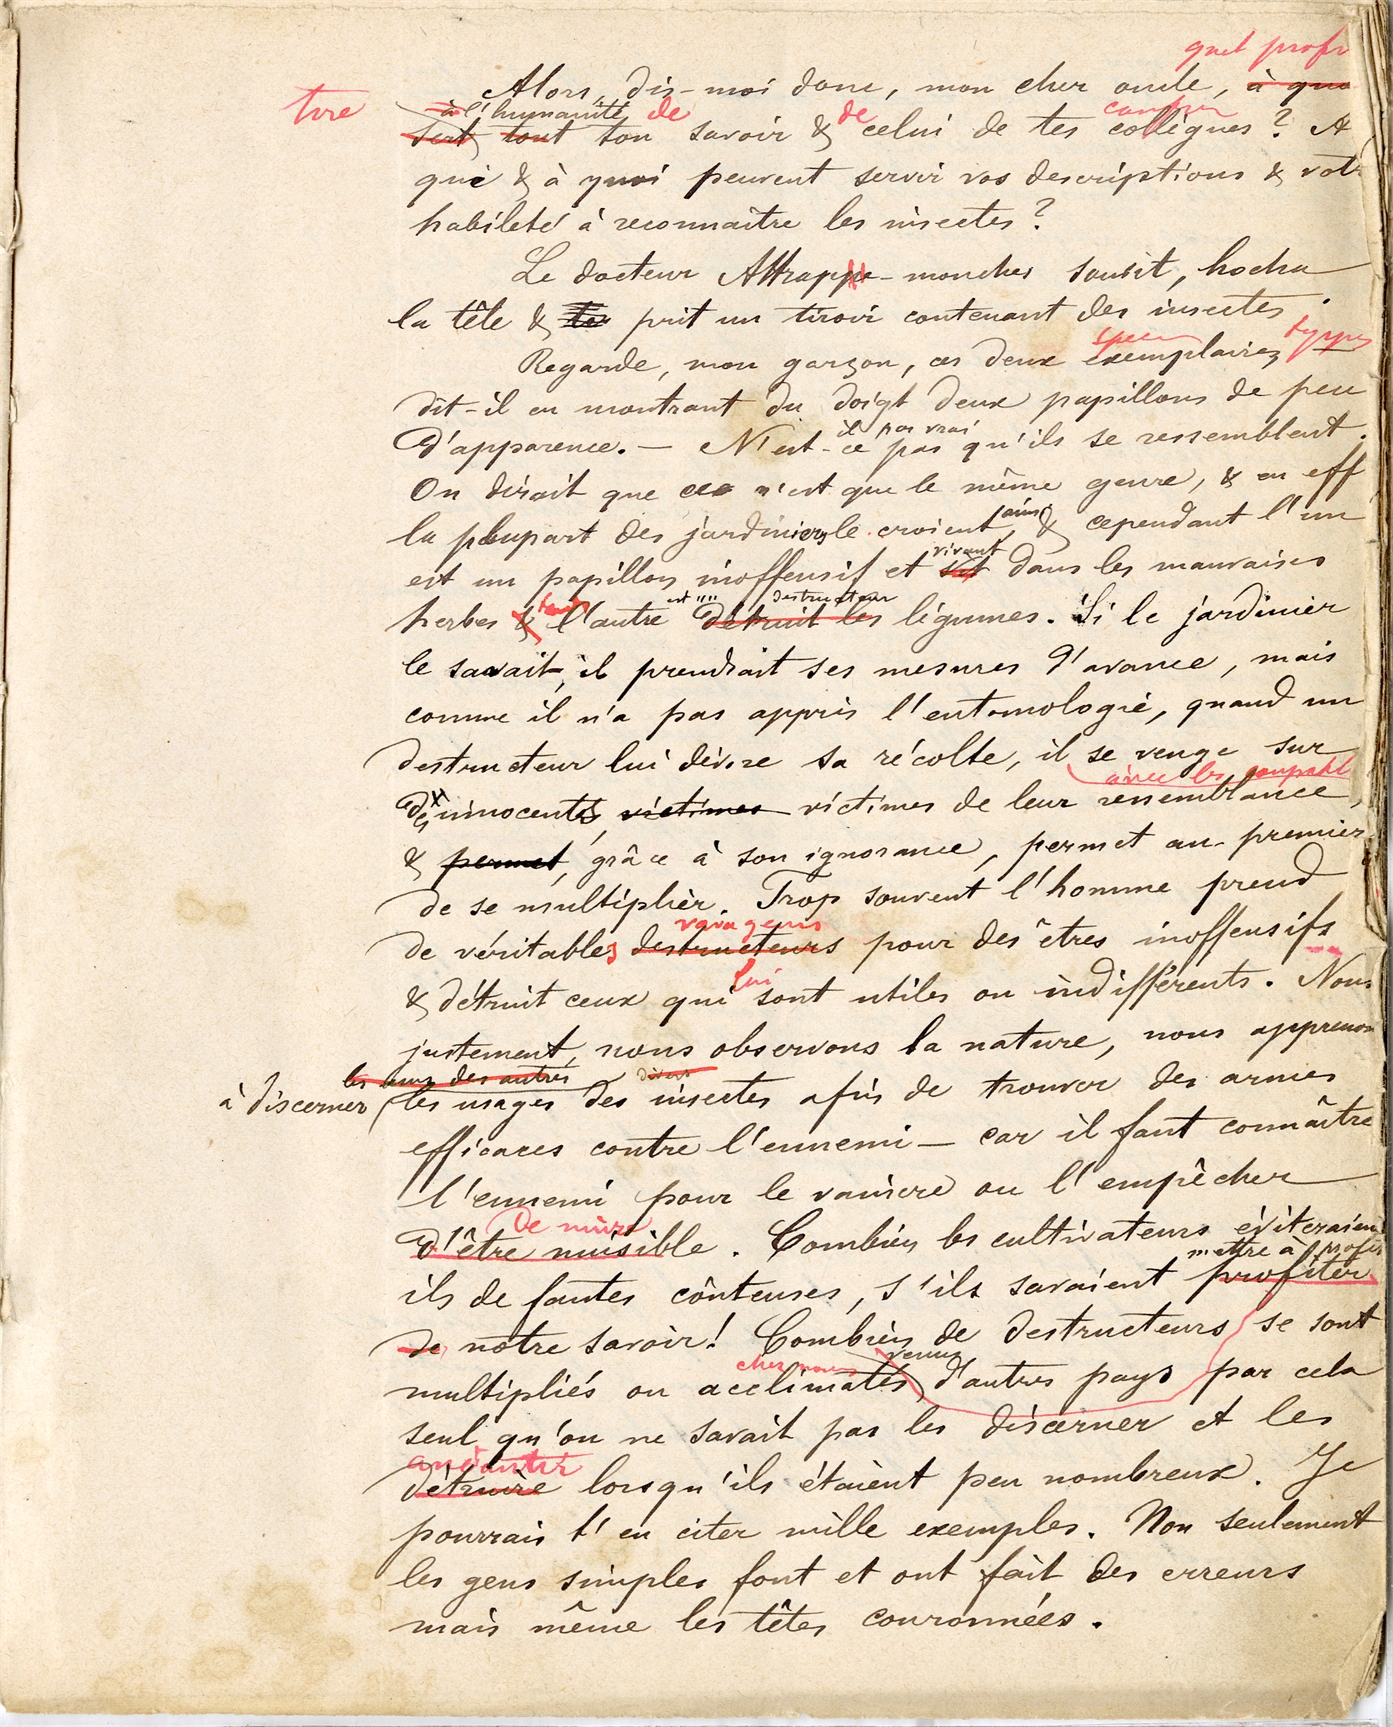 quel profi
Alors, dis-moi donc, mon cher oncle, à quo
tire
à l'humanité de de
sert tout ton savoir & celui de tes collègues ? A
qui & à quoi peuvent servir vos descriptions & votr
habileté à reconnaître les insectes ?
Le docteur Attrappe-mouches sourit, hocha
la tête & prit un tiroir contenant des insectes.
types
Regarde, mon garçon, ces deux exemplaires,
dit-il en montrant du doigt deux papillons de peu
il pas vrai
d'apparence. — N'est-ce pas qu'ils se ressemblent.
On dirait que ce n'est que le même genre, & en eff
ainsi
la plupart des jardiniers le croient, & cependant l'un
vivant
est un papillon inoffensif et vit dans les mauvaises
est destructeur
herbes & l'autre détruit les légumes. Si le jardinier
le savait, il prendrait ses mesures d'avance, mais
comme il n'a pas appris l'entomologie, quand un
destructeur lui dévore sa récolte, il se venge sur
avec les coupabl
des innocents, victimes victimes de leur ressemblance,
& permet, grâce à son ignorance, permet au premier
de se multiplier. Trop souvent l'homme prend
ravageurs
de véritables destructeurs pour des êtres inoffensifs
lui
& détruit ceux qui sont utiles ou indifférents. Nous
justement, nous observons la nature, nous apprenon
les uns des autres divers
à discerner les usages des insectes afin de trouver des armes
efficaces contre l'ennemi — car il faut connaître
l'ennemi pour le vaincre ou l'empêcher
de nuire
d'être nuisible. Combien les cultivateurs éviteraien
mettre à profit
ils de fautes coûteuses, s'ils savaient profiter
de notre savoir! Combien de destructeurs se sont
chez nous venus
multipliés ou acclimatés, d'autres pays par cela
seul qu'on ne savait pas les discerner et les
anéantir
détruire lorsqu'ils étaient peu nombreux. Je
pourrais t'en citer mille exemples. Non seulement
les gens simples font et ont fait des erreurs
mais même les têtes couronnées.